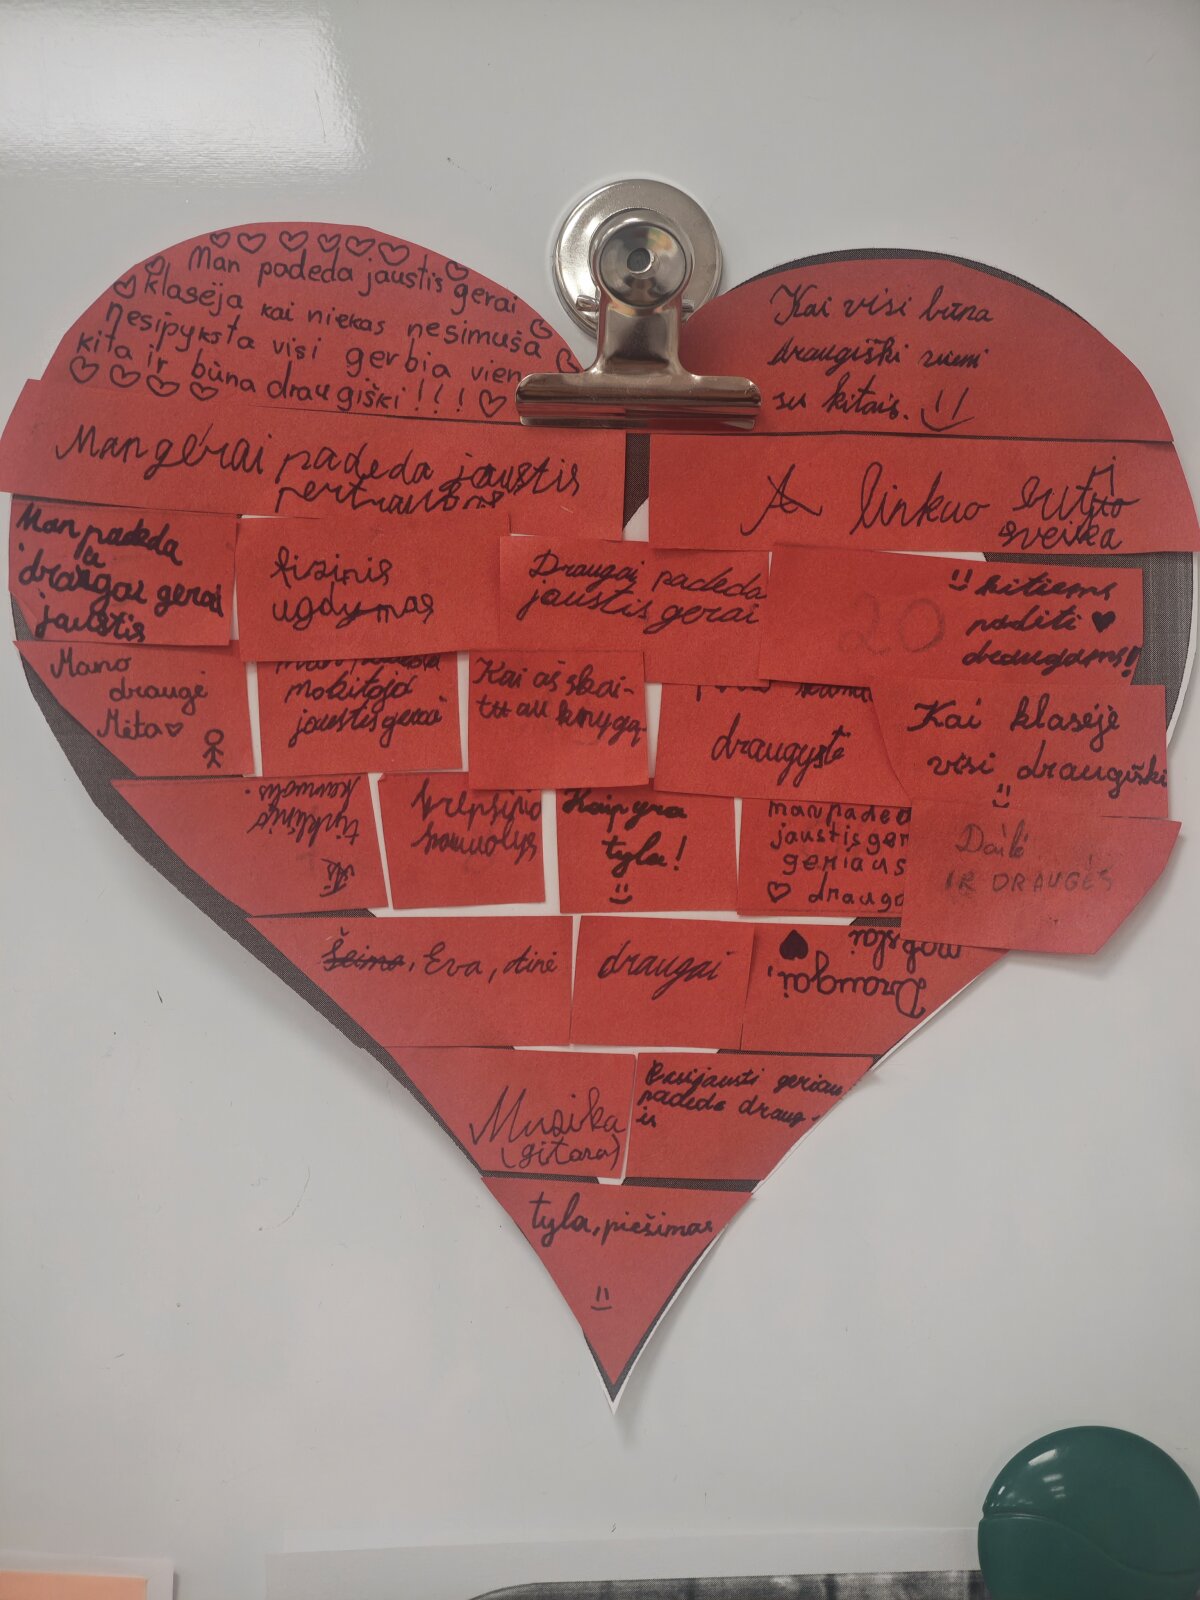 Man padeda jaustis gerai
klasėja kai niekas nesimuša
nesipyksta visi gerbia vien
kita ir būna draugiški!!!
Kai visi būna
draugiški
su kitais.
Man gerai padeda jaustis
A linkuo
sveika
Man padeda
draugai gerai
jaustis
fizinis
ugdymas
Draugai padeda
jaustis gerai
20
kitiems
padėti
draugams!
Mano
draugė
Mėta
mokitoja
jaustis gerai
Kai aš skai-
tau knygą
draugystė
Kai klasėjė
visi draugiški
tinklinio
kamuolis.
krepšinio
kamuolys
Kaip yra
tyla!
man padeda
jaustis ger
geriaus
draugo
Dailė
IR DRAUGĖS
Šeima, Eva,
draugai
Draugai,
mokslai
Musika
(gitara)
geriau
padeda draug-
is
tyla, piešimas